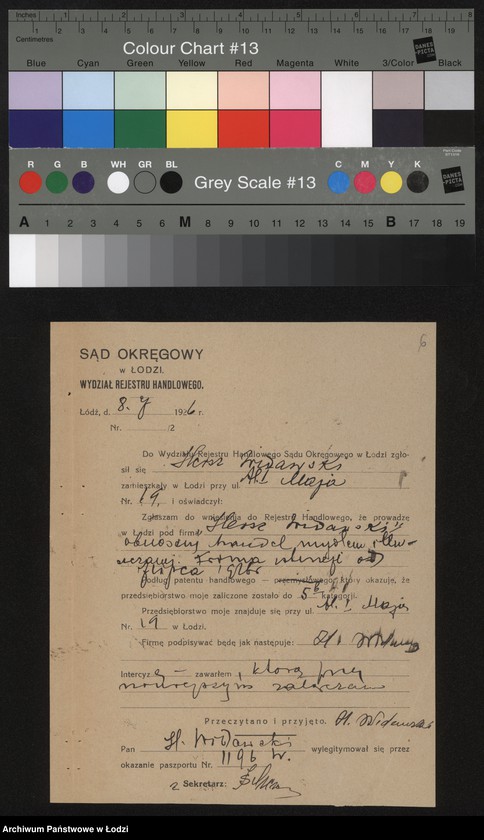 Inches 1 2 3 4 5 6 7 8
Centimetres 1 2 3 4 5 6 7 8 9 10 11 12 13 14 15 16 17 18 19
Colour Chart #13
DANES PICTA
Blue Cyan Green Yellow Red Magenta White 3/Color Black
R G B WH GR BL Grey Scale #13 C M Y K
DANES PICTA
A 1 2 3 4 5 6 M 8 9 10 11 12 13 14 15 B 17 18 19
6
SĄD OKRĘGOWY
w ŁODZI.
WYDZIAŁ REJESTRU HANDLOWEGO.
Łódź, d. 8. 1926 r.
Nr. /2
Do Wydziału Rejestru Handlowego Sądu Okręgowego w Łodzi zgło-
sił się Widawski
zamieszkały w Łodzi przy ul. Al. I Maja
Nr. 19, i oświadczył:
Zgłaszam do wciągnięcia do Rejestru Handlowego, że prowadzę
w Łodzi pod firmą Widawski"
handel mydłem
Firma od
lipca
Podług patentu handlowego — przemysłowego, który okazuję, że
przedsiębiorstwo moje zaliczone zostało do 5 kategorji.
Przedsiębiorstwo moje znajduje się przy ul. Al. I Maja
Nr. 19 w Łodzi.
Firmę podpisywać będę jak następuje: H. Widawski
Intercyzę — zawarłem, którą przy
niniejszym załączam
Przeczytano i przyjęto. H. Widawski
Pan H. Widawski wylegitymował się przez
okazanie paszportu Nr. 1196
2 Sekretarz:
Archiwum Państwowe w Łodzi